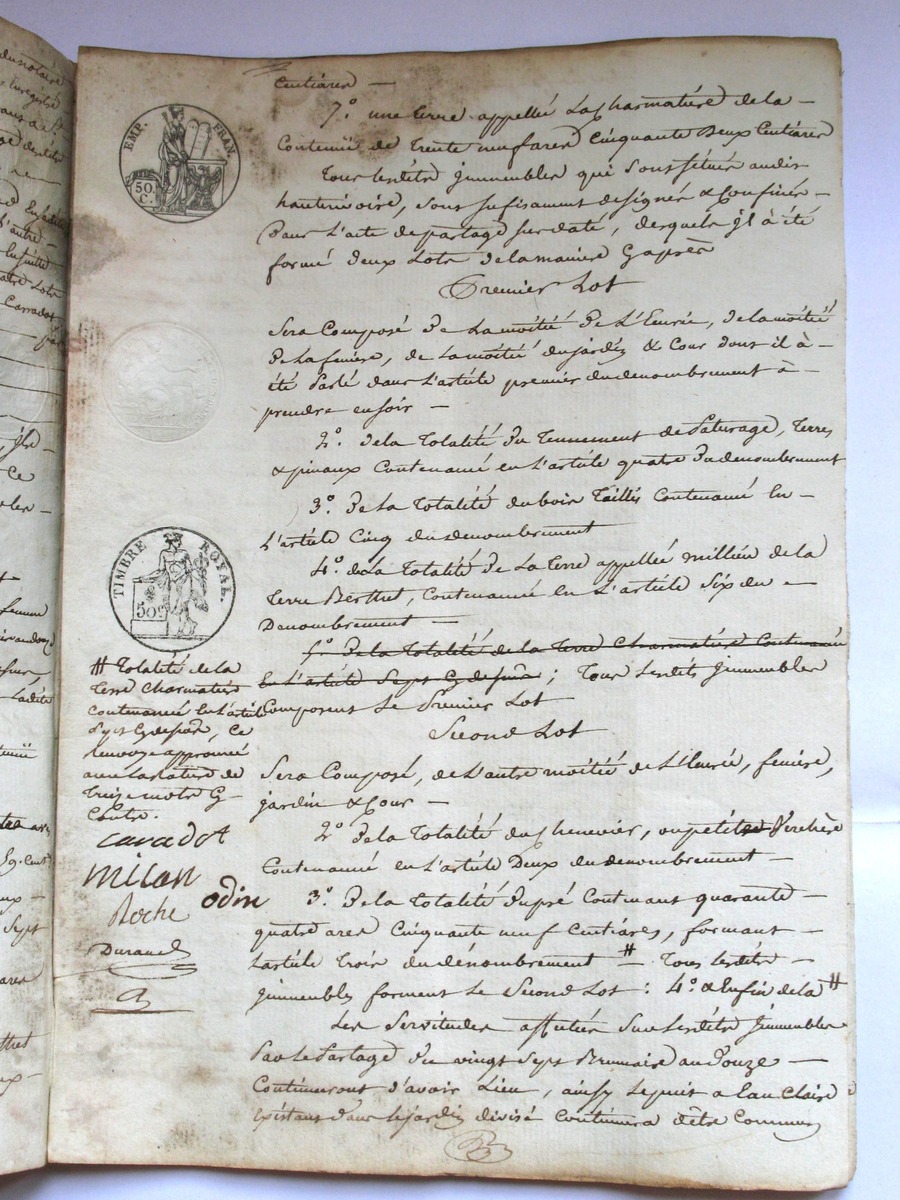 Centiares —
7° une terre appellé La Charmatière de la —
Contenüe de trente neuf ares Cinquante Deux Centiares
Tous lesdits jmmeubles qui sont situés audit
hauterivoire, sont sufisament designés & Confinés —
Dans l'acte de partage sus daté, desquels jl à été
formé deux Lots de la manière Cy après
Premier Lot
Sera Composé De La moitié De L'Ecurie, de la moitié
De la fenière, de La moitié du jardin & Cour dont il à —
été Parlé dans L'article premier du denombrement à —
prendre en soir —
2°. de la Totalité Du Tennement de Paturage, Terres
& pinaux Contenamé en L'article quatre Du denombrement
3°. De La Totalité du bois Taillis Contenamé En —
L'article Cinq du denombrement
4°. de La Totalité De La Terre appellée millieu de la
Terre Berthet, Contenamée en L'article Six du —
Denombrement —
5°. De la Totalité de la Terre Charmatière Contenamée
En L'article Sept Cy dessus ; Tous lesdits Jmmeubles
Composent Le Premier Lot
Second Lot
Sera Composé, de L'autre moitié de L'Ecurie, fenière,
jardin & Cour —
2° De la Totalité du Chenevier, ou petite Verchère
Contenamé en L'article Deux du denombrement —
3°. De la Totalité Du pré Contenant quarante
quatre ares Cinquante neuf Centiares, formant —
L'article trois du dénombrement # Tous lesdits —
Jmmeubles forment Le Second Lot : 4° & Enfin de la #
Les Servitudes affectées Sur lesdits Jmmeubles
Par le Partage du vingt Sept Brumaire an Douze —
Continueront d'avoir Lieu, ainsy Le puit a Eau Claire
Existant dans le jardin divisé Continuera d'être Commun
EMP. FRAN.
50
C.
TIMBRE ROYAL.
50 c
# Totalité de la
Terre Charmatière
Contenamée en L'article
Sept Cy dessus, Ce
Renvoye approuvé
avec la rature de
Treize mots Cy
Contre.
caradot
milan
odin
Roche
Durand